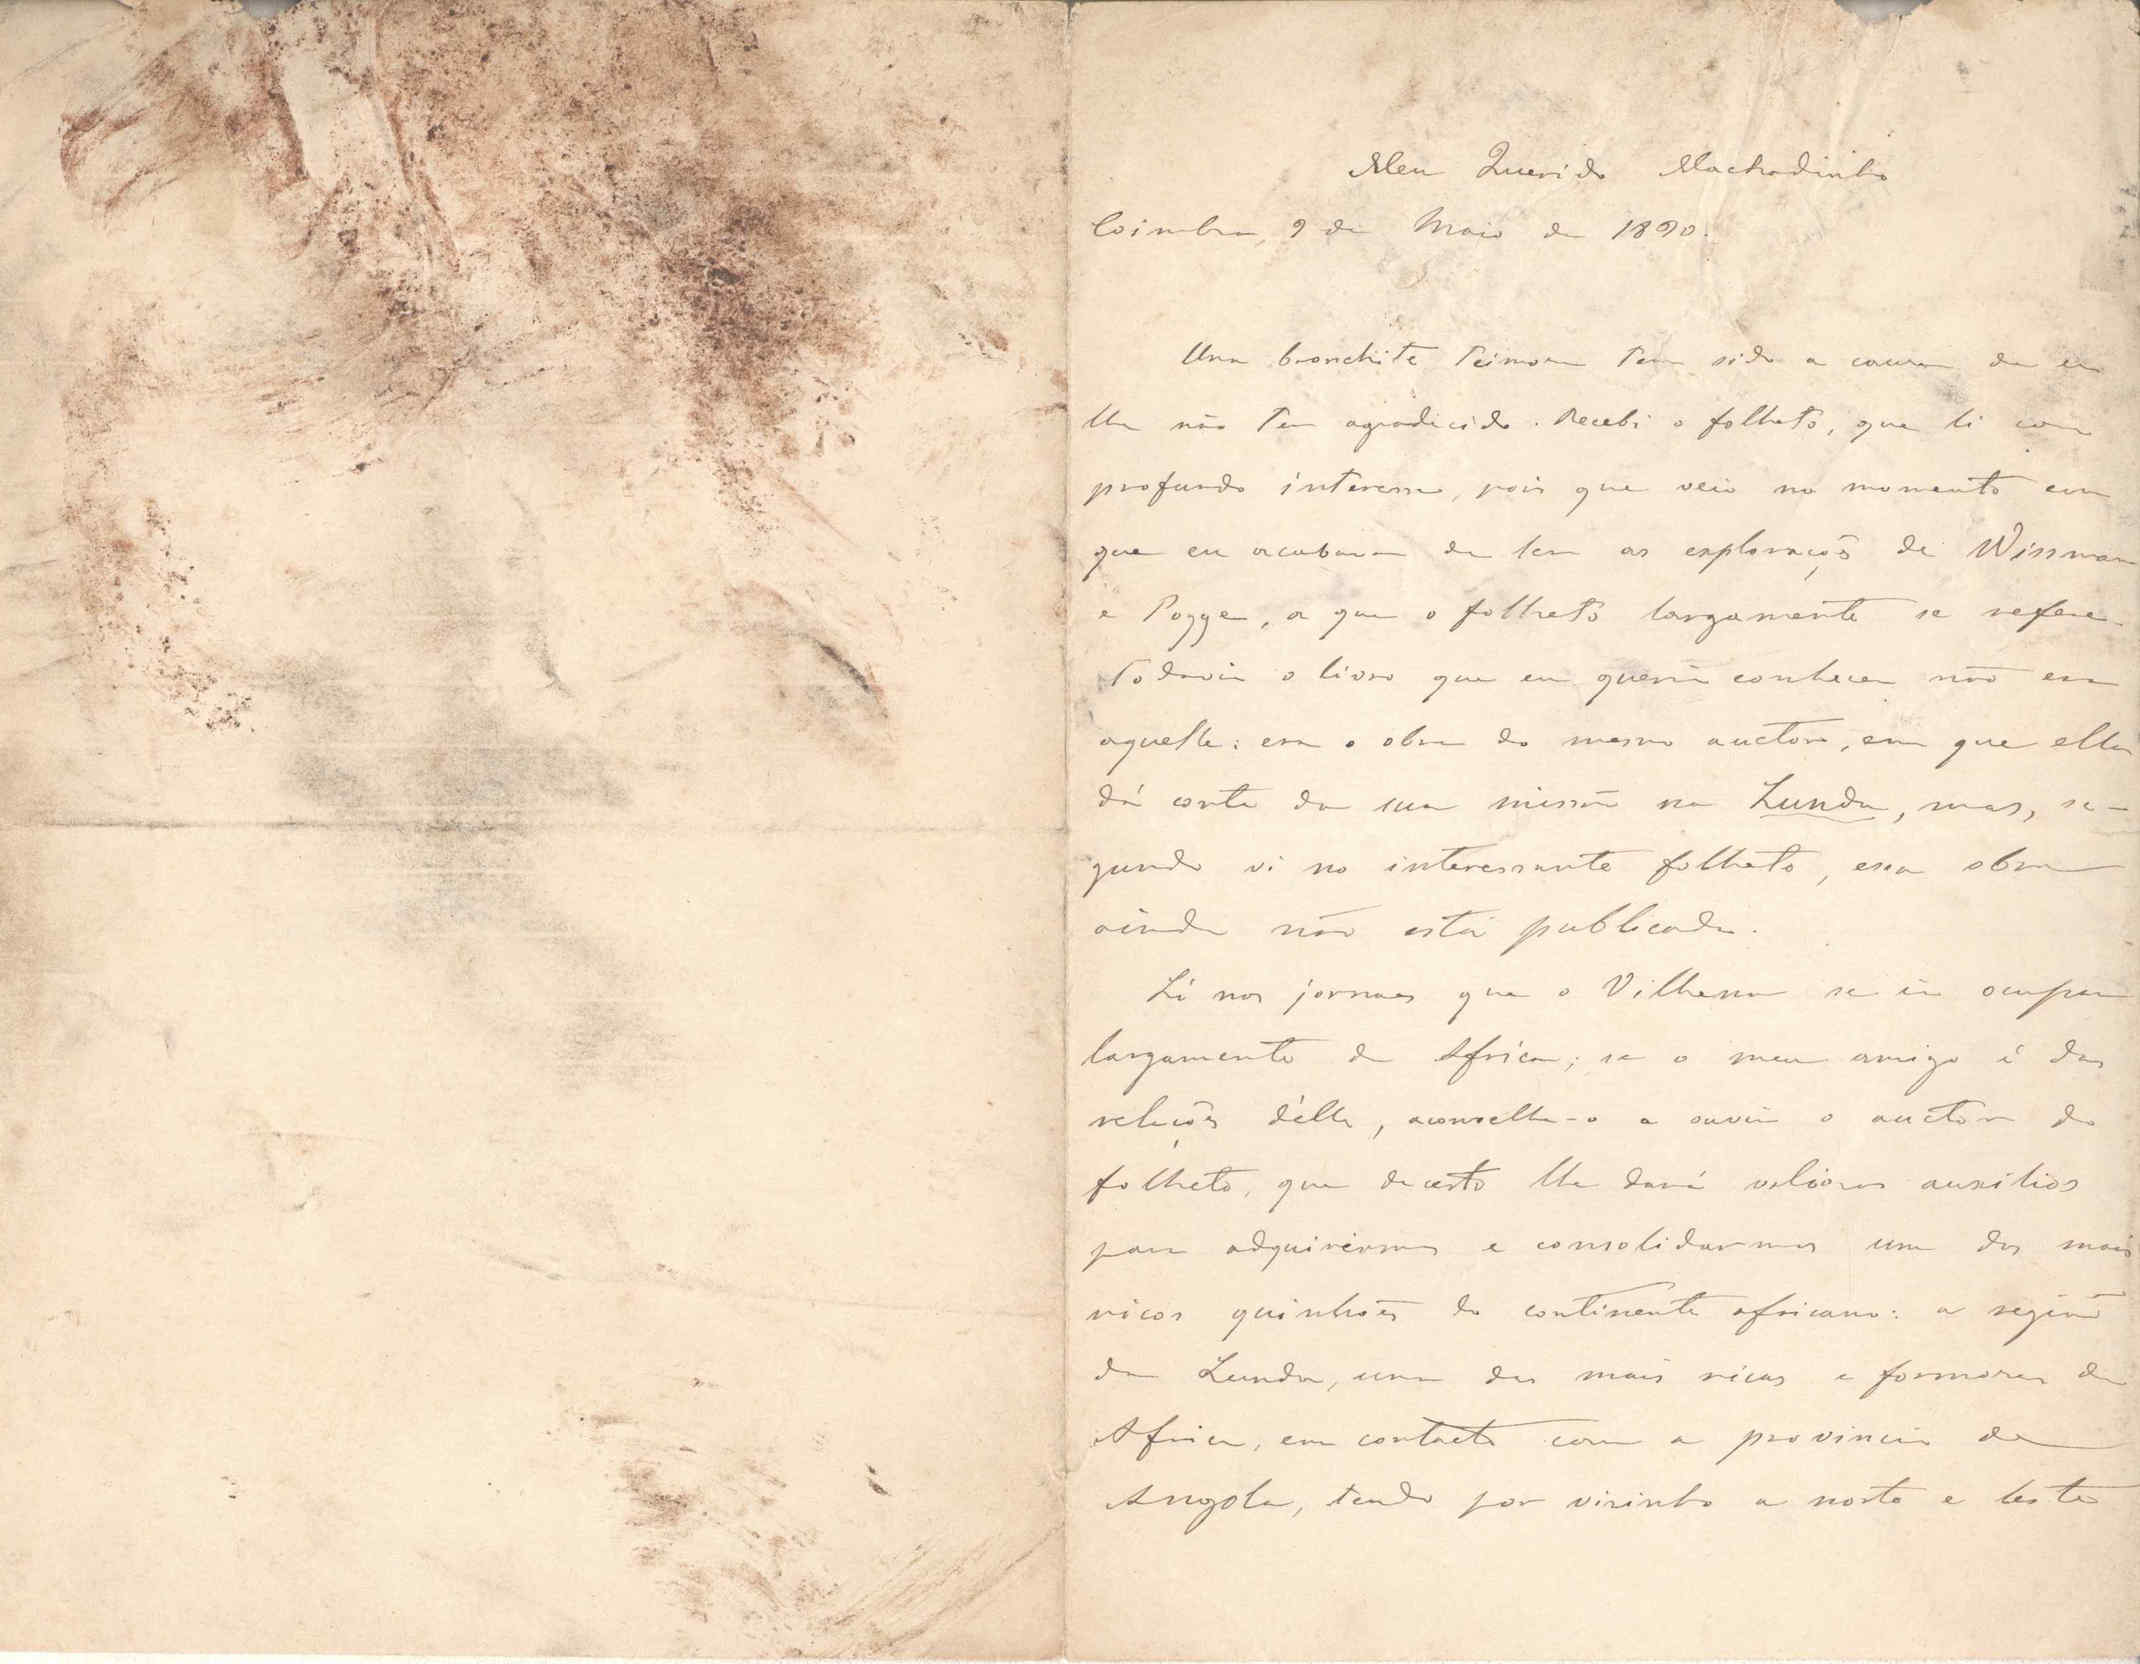 Meu Querido Machadinho
Coimbra, 9 de Maio de 1890.
Uma bronchite teimosa tem sido a causa de eu
lhe não ter agradecido. Recebi o folheto, que li com
profundo interesse, pois que veio no momento em
que eu acabava de ler as explorações de Wissman
e Pogge, a que o folheto largamente se refere.
Todavia o livro que eu queria conhecer não era
aquelle: era a obra do mesmo auctor, em que elle
dá conta da sua missão na Lunda, mas, se-
gundo vi no interessante folheto, essa obra
ainda não está publicada.
Li nos jornaes que o Vilhena se ia occupar
largamente de Africa; se o meu amigo é das
relações d'elle, aconselhe-o a ouvir o auctor do
folheto, que de certo lhe dará valiosos auxilios
para adquirirmos e consolidarmos um dos mais
ricos quinhões do continente africano: a região
da Lunda, uma das mais ricas e formosas da
Africa, em contacto com a provincia de
Angola, tendo por visinho a norte e leste